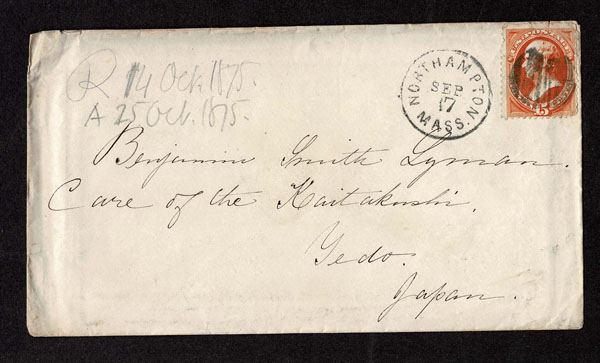 R 14 Oct. 1875.
A 25 Oct. 1875.
NORTHAMPTON
SEP
17
MASS.
15
Benjamin Smith Lyman.
Care of the Kaitakushi,
Yedo.
Japan.